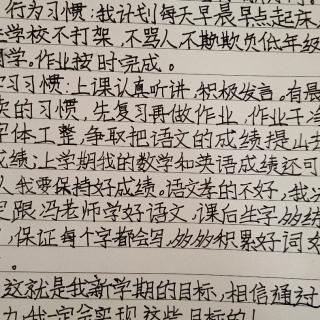 行为习惯:我计划每天早晨早点起床
学校不打架,不骂人,不欺欺负低年级
同学。作业按时完成。
学习习惯:上课认真听讲,积极发言。有晨
读的习惯,先复习再做作业,作业干净
字体工整,争取把语文的成绩提上去
成绩;上学期我的数学和英语成绩还可
我要保持好成绩。语文考的不好,我
跟冯老师学好语文,课后生字多练
,保证每个字都会写,多多积累好词
。
这就是我新学期的目标,相信通过
力,我一定会实现这些目标的!